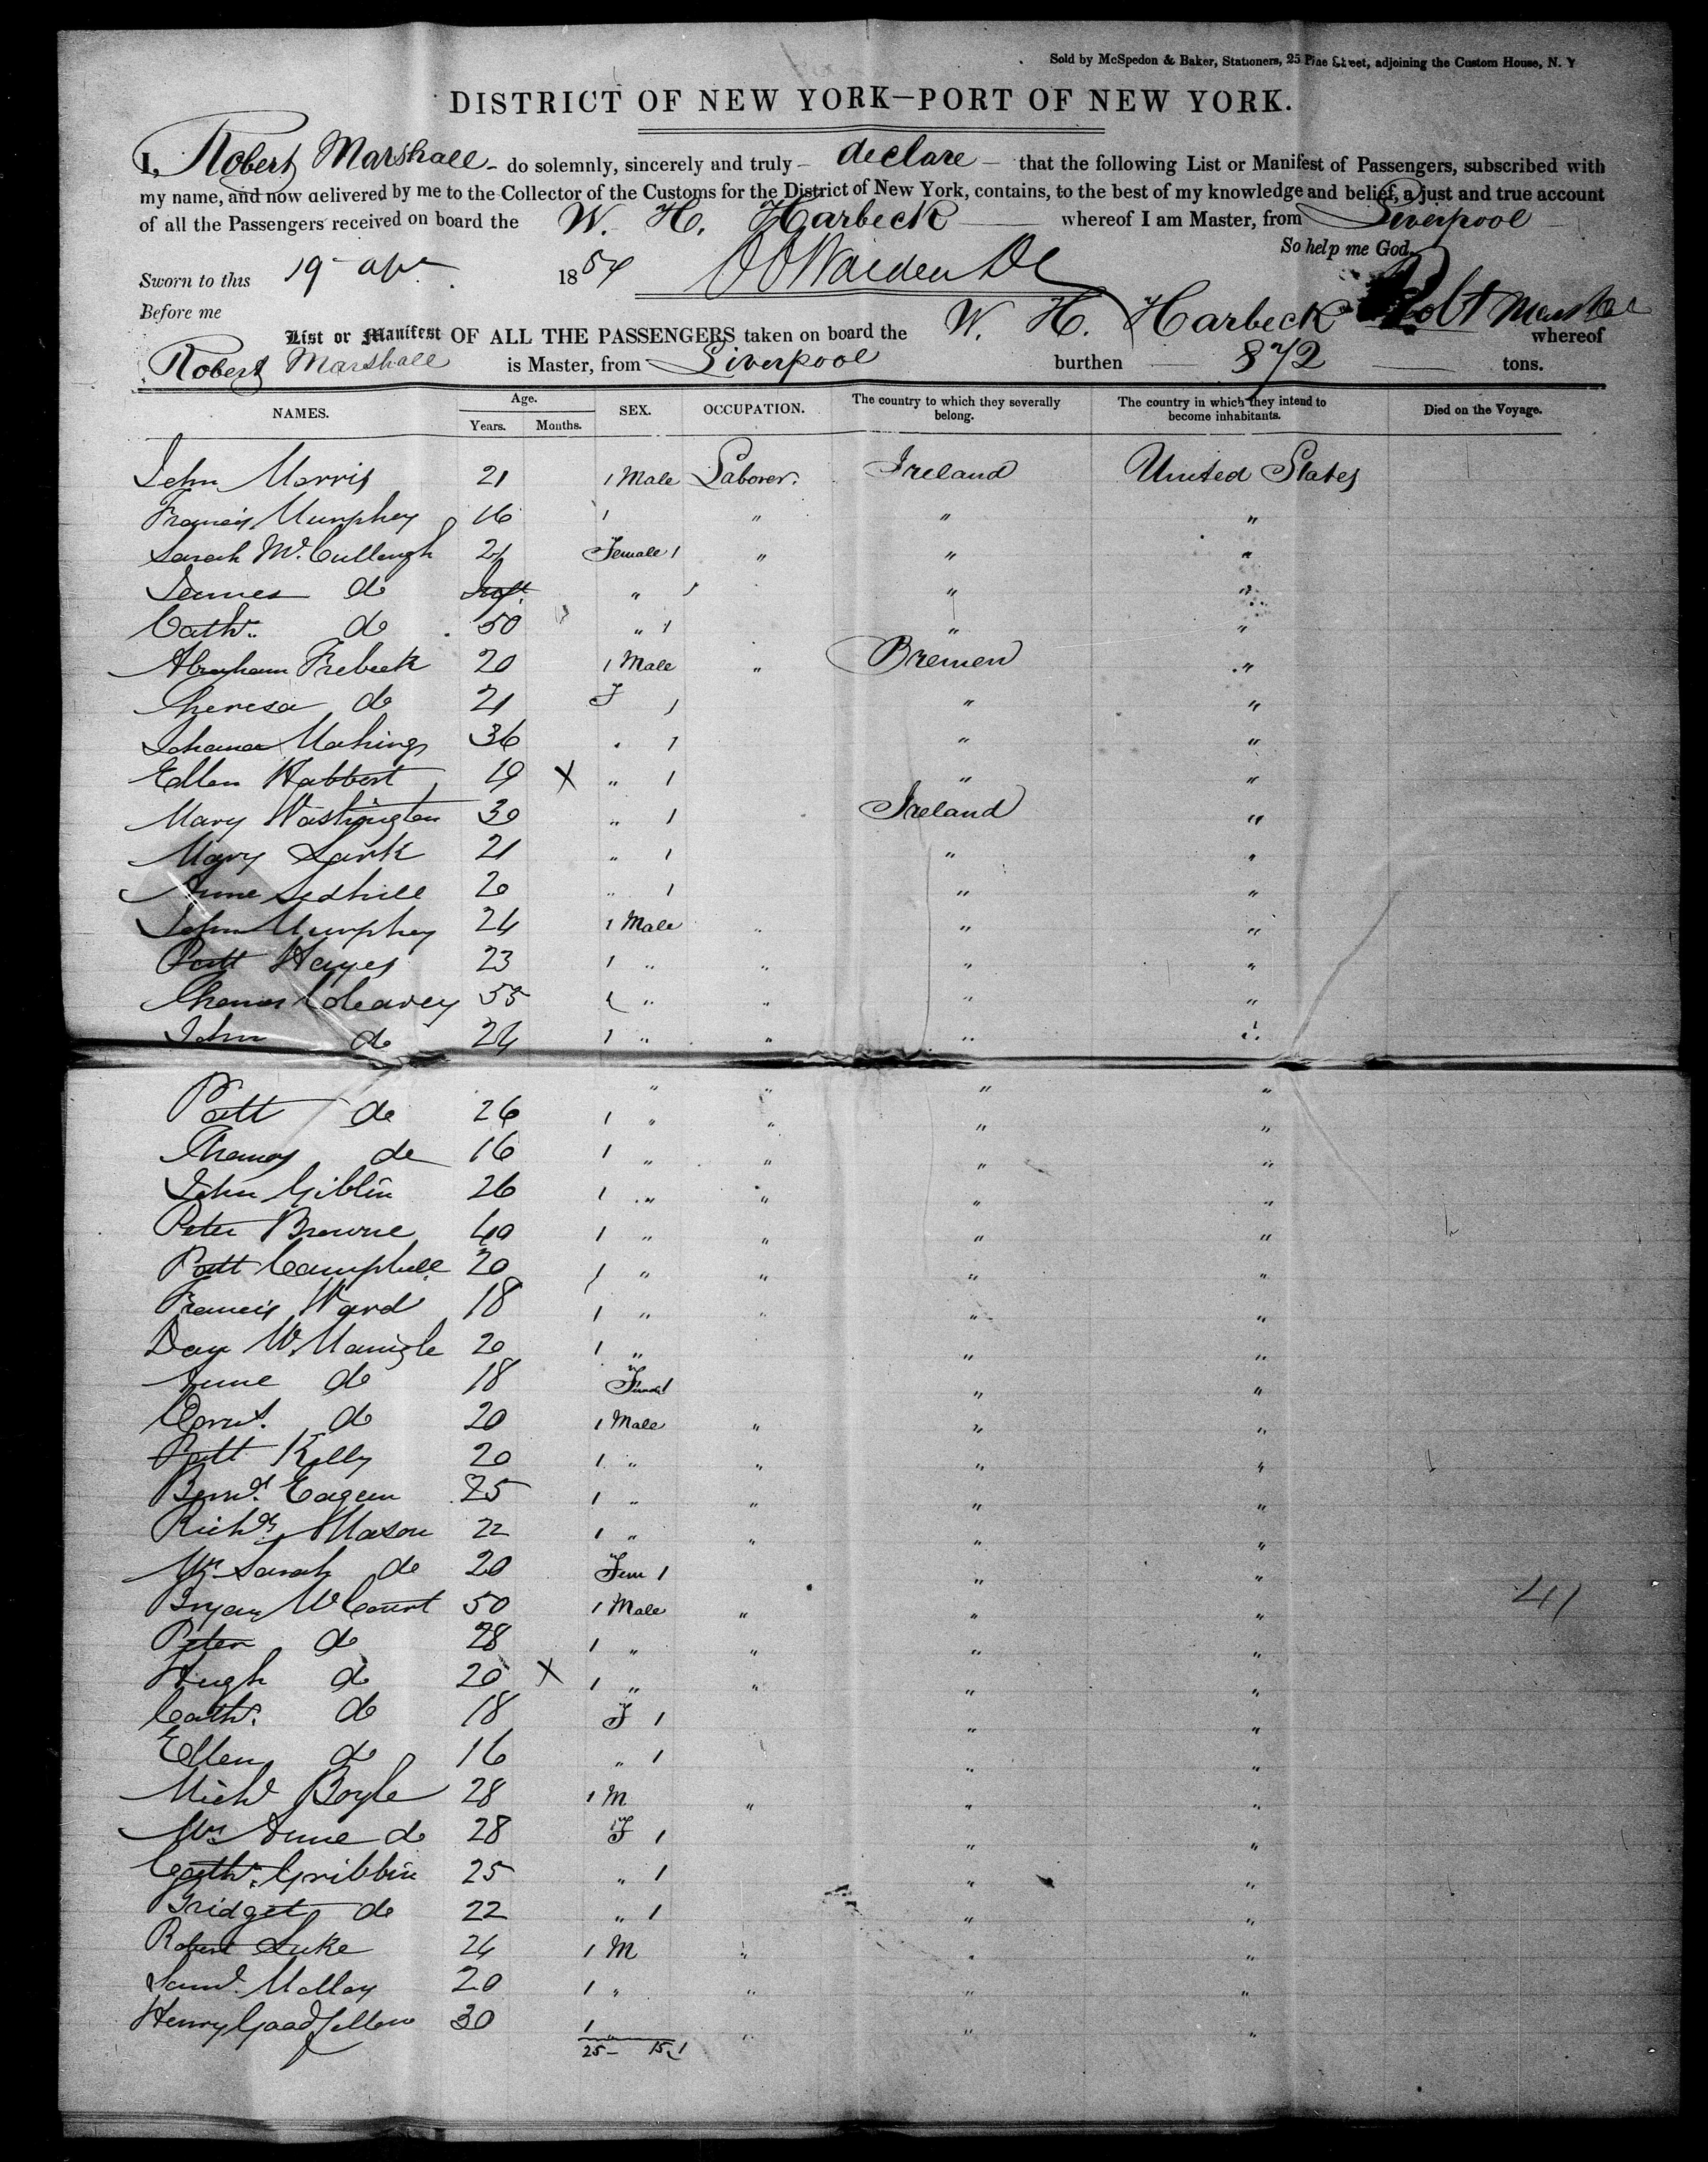 Sold by McSpedon & Baker, Stationers, 25 Pine Street, adjoining the Custom House, N. Y
DISTRICT OF NEW YORK—PORT OF NEW YORK.
I, Robert Marshall - do solemnly, sincerely and truly - declare - that the following List or Manifest of Passengers, subscribed with
my name, and now delivered by me to the Collector of the Customs for the District of New York, contains, to the best of my knowledge and belief, a just and true account
of all the Passengers received on board the W. H. Harbeck whereof I am Master, from Liverpool
So help me God.
Sworn to this 19 apr 1854
Before me Robt Marshall
List or Manifest OF ALL THE PASSENGERS taken on board the W. H. Harbeck whereof
Robert Marshall is Master, from Liverpool burthen 872 tons.
NAMES. Age. Years. Months. SEX. OCCUPATION. The country to which they severally belong. The country in which they intend to become inhabitants. Died on the Voyage.
John Morris 21 1 Male Laborer. Ireland United States
Francis Murphey 16 1 " " "
Sarah McCullough 21 Female 1 " " "
James do Inft. " " "
Cathe. do 50 " 1 " "
Abraham Frebeck 20 1 Male " Bremen "
Theresa do 21 F 1 " "
Johanar 36 " 1 " "
Ellen Habbert 19 X " 1 " "
Mary Washington 30 " 1 Ireland "
Mary Lark 21 " 1 " "
Anne Sedhill 20 " 1 " "
John Murphey 24 1 Male " " "
Patt Hayes 23 1 " " " "
Thomas 55 1 " " " "
John do 24 1 " " " "
" " " "
Patt do 26 1 " " " "
Thomas do 16 1 " " " "
John Giblin 26 1 " " " "
Peter Browne 40 1 " " " "
Patt Campbell 20 1 " " " "
Francis Ward 18 1 " " " "
20 1 " " "
Anne do 18 Fem 1 " "
do 20 1 Male " " "
Patt Kelly 20 1 " " " "
Bernd. Eagen 25 1 " " " "
Richd. Mason 22 1 " " " "
Mrs Sarah do 20 Fem 1 " "
Bryan McCourt 50 1 Male " " " 41
Peter do 28 1 " " " "
Hugh do 20 X 1 " " " "
Cathe. do 18 F 1 " "
Ellen do 16 " 1 " "
Michl Boyle 28 1 M " " "
Mrs Anne do 28 F 1 " "
Cathe. Gribbin 25 " 1 " "
Bridget do 22 " 1 " "
Robert Luke 24 1 M " " "
Saml. Molloy 20 1 " " " "
Henry Goodfellow 30 1 " " " "
25 - 15